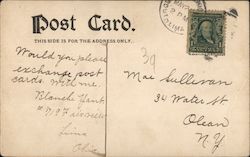 Post Card.
THIS SIDE IS FOR THE ADDRESS ONLY.
Would you please
exchange post
cards with me.
Blanche
Lima
Ohio
39
Mae Sullivan
34 Water St
Olean
N.Y